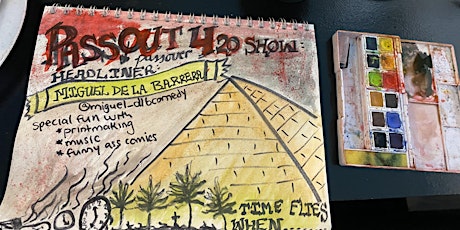 PASSOUT 420 SHOW:
passover
HEADLINER:
MIGUEL DE LA BARRERA
@miguel_dlbcomedy
special fun with
* printmaking
* music
* funny ass comics
TIME FLIES
WHEN...